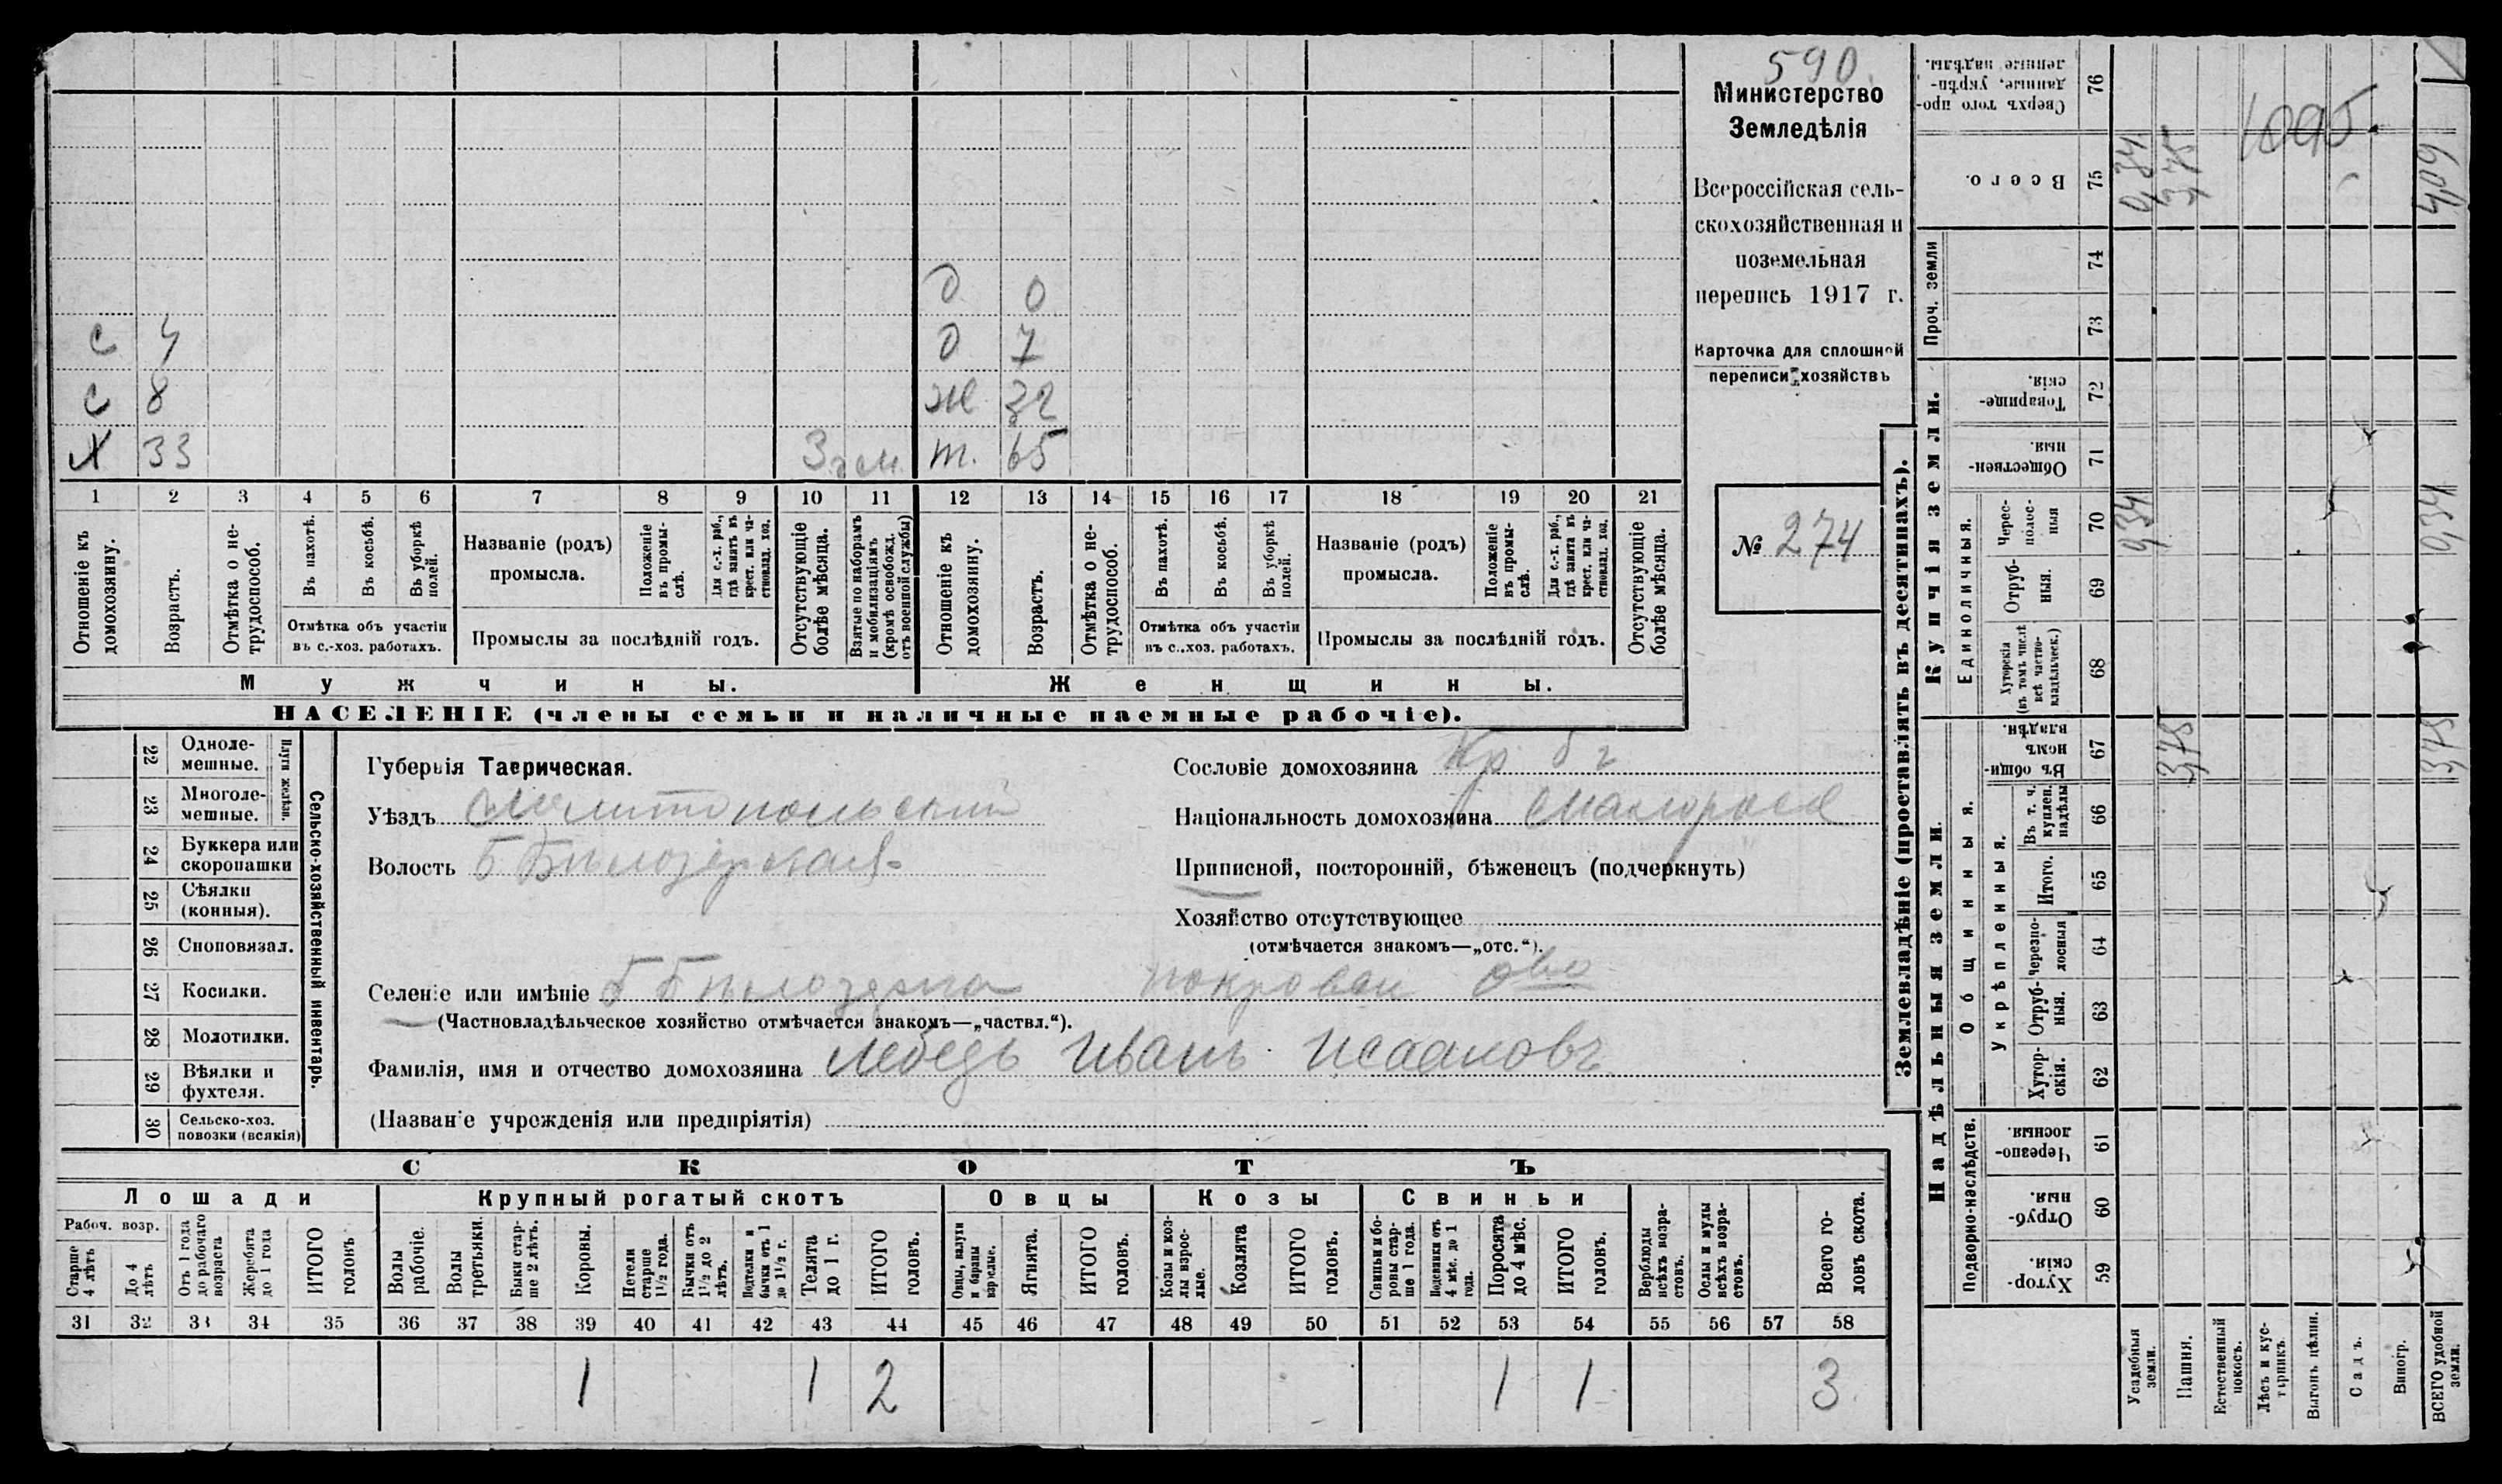 590
Министерство
Земледѣлія
Всероссійская сель-
скохозяйственная и
поземельная
перепись 1917 г.
Карточка для сплошной
переписи хозяйствъ
№ 274
д 0
с 4 д 7
с 8 ж 32
х 33 м. 65
1 2 3 4 5 6 7 8 9 10 11 12 13 14 15 16 17 18 19 20 21
Отношеніе къ домохозяину.
Возрастъ.
Отмѣтка о не-трудоспособ.
Въ пахотѣ.
Въ косьбѣ.
Въ уборкѣ полей.
Отмѣтка объ участіи
въ с.-хоз. работахъ.
Названіе (родъ)
промысла.
Положеніе въ промы-слѣ.
Для с.-х. раб., гдѣ занятъ въ крест. или ча-стновлад. хоз.
Промыслы за послѣдній годъ.
Отсутствующіе болѣе мѣсяца.
Взятые по наборамъ и мобилизаціямъ (кромѣ освобожд. отъ военной службы)
Отношеніе къ домохозяину.
Возрастъ.
Отмѣтка о не-трудоспособ.
Въ пахотѣ.
Въ косьбѣ.
Въ уборкѣ полей.
Отмѣтка объ участіи
въ с.-хоз. работахъ.
Названіе (родъ)
промысла.
Положеніе въ промы-слѣ.
Для с.-х. раб., гдѣ занята въ крест. или ча-стновлад. хоз.
Промыслы за послѣдній годъ.
Отсутствующіе болѣе мѣсяца.
Мужчины. Женщины.
НАСЕЛЕНІЕ (члены семьи и наличные наемные рабочіе).
22 Одноле-мешные.
23 Многоле-мешные.
Плуги желѣзн.
24 Буккера или скоропашки
25 Сѣялки (конныя).
26 Сноповязал.
27 Косилки.
28 Молотилки.
29 Вѣялки и фухтеля.
30 Сельско-хоз. повозки (всякія)
Сельско-хозяйственный инвентарь.
Губернія Таврическая.
Уѣздъ Мелитопольский
Волость Б Бѣлозерская
Сословіе домохозяина Кр
Національность домохозяина малоросс
Приписной, посторонній, бѣженецъ (подчеркнуть)
Хозяйство отсутствующее
(отмѣчается знакомъ—„отс.“).
Селеніе или имѣніе Б Бѣлозерка покровск о-во
(Частновладѣльческое хозяйство отмѣчается знакомъ—„частвл.“).
Фамилія, имя и отчество домохозяина Лебедь Иванъ Исааковъ
(Названіе учрежденія или предпріятія)
СКОТЪ
Лошади Крупный рогатый скотъ Овцы Козы Свиньи
Рабоч. возр.
Старше 4 лѣтъ
До 4 лѣтъ
Отъ 1 года до рабочаго возраста
Жеребята до 1 года
ИТОГО головъ
Волы рабочіе.
Волы третьяки.
Быки стар-ше 2 лѣтъ.
Коровы.
Нетели старше 1½ года.
Бычки отъ 1½ до 2 лѣтъ.
Подтелки и бычки отъ 1 до 1½ г.
Телята до 1 г.
ИТОГО головъ.
Овцы, валухи и бараны взрослые.
Ягнята.
ИТОГО головъ.
Козы и коз-лы взрос-лые.
Козлята
ИТОГО головъ.
Свиньи и бо-ровы стар-ше 1 года.
Подсвинки отъ 4 мѣс. до 1 года.
Поросята до 4 мѣс.
ИТОГО головъ.
Верблюды всѣхъ возра-стовъ.
Ослы и мулы всѣхъ возра-стовъ.
Всего го-ловъ скота.
31 32 33 34 35 36 37 38 39 40 41 42 43 44 45 46 47 48 49 50 51 52 53 54 55 56 57 58
1 1 2 1 1 3
Землевладѣніе (проставлять въ десятинахъ).
Надѣльныя земли. Купчія земли. Проч. земли
Подворно-наслѣдств. Общинныя. Единоличныя.
Укрѣпленныя.
59 Хутор-скія.
60 Отруб-ныя.
61 Черезпо-лосныя.
62 Хутор-скія.
63 Отруб-ныя.
64 Черезпо-лосныя
65 Итого.
66 Въ т. ч. куплен. надѣлы
67 Въ общин-номъ владѣн.
68 Хуторскія (въ томъ числѣ всѣ частно-владѣльческ.)
69 Отруб-ныя.
70 Черес-полос-ныя
71 Обществен-ныя
72 Товарище-скія.
73
74
75 Всего.
76 Сверхъ того про-данные, укрѣп-ленные надѣлы.
Усадебныя земли. 0,34 0,34
Пашня. 3,75 3,75
Естественный покосъ.
Лѣсъ и кус-тарникъ.
Выгонъ цѣлин.
Садъ.
Виногр.
ВСЕГО удобной земли. 3,75 0,34 4,09
1095.